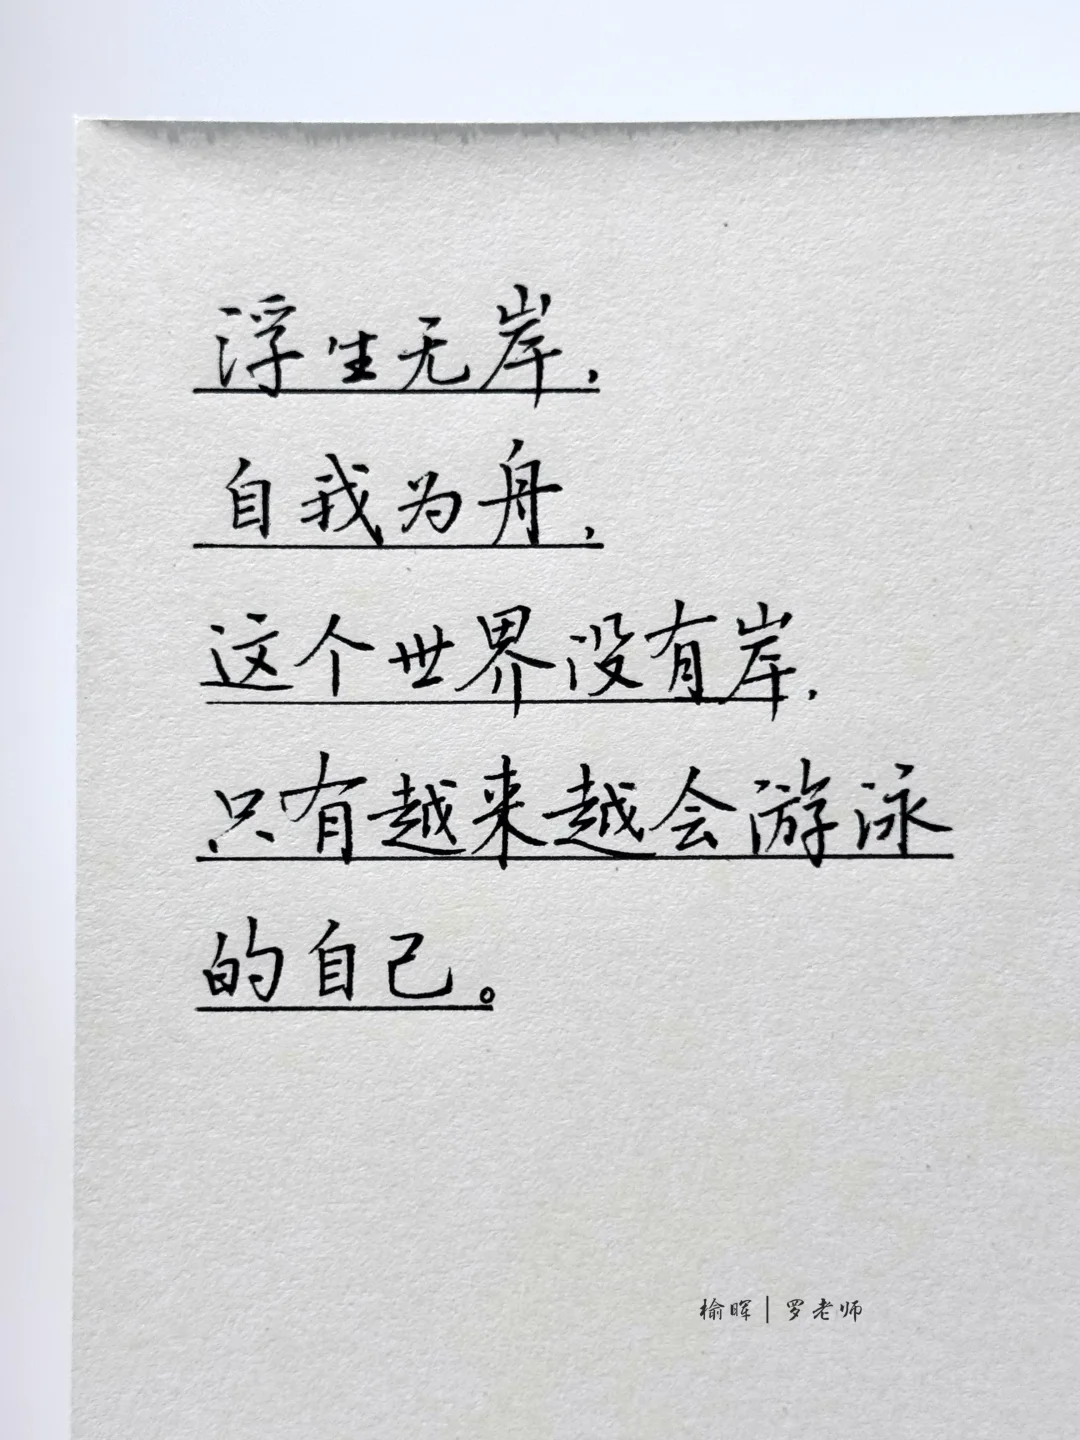 浮生无岸，
自我为舟，
这个世界没有岸，
只有越来越会游泳
的自己。
榆晖｜罗老师